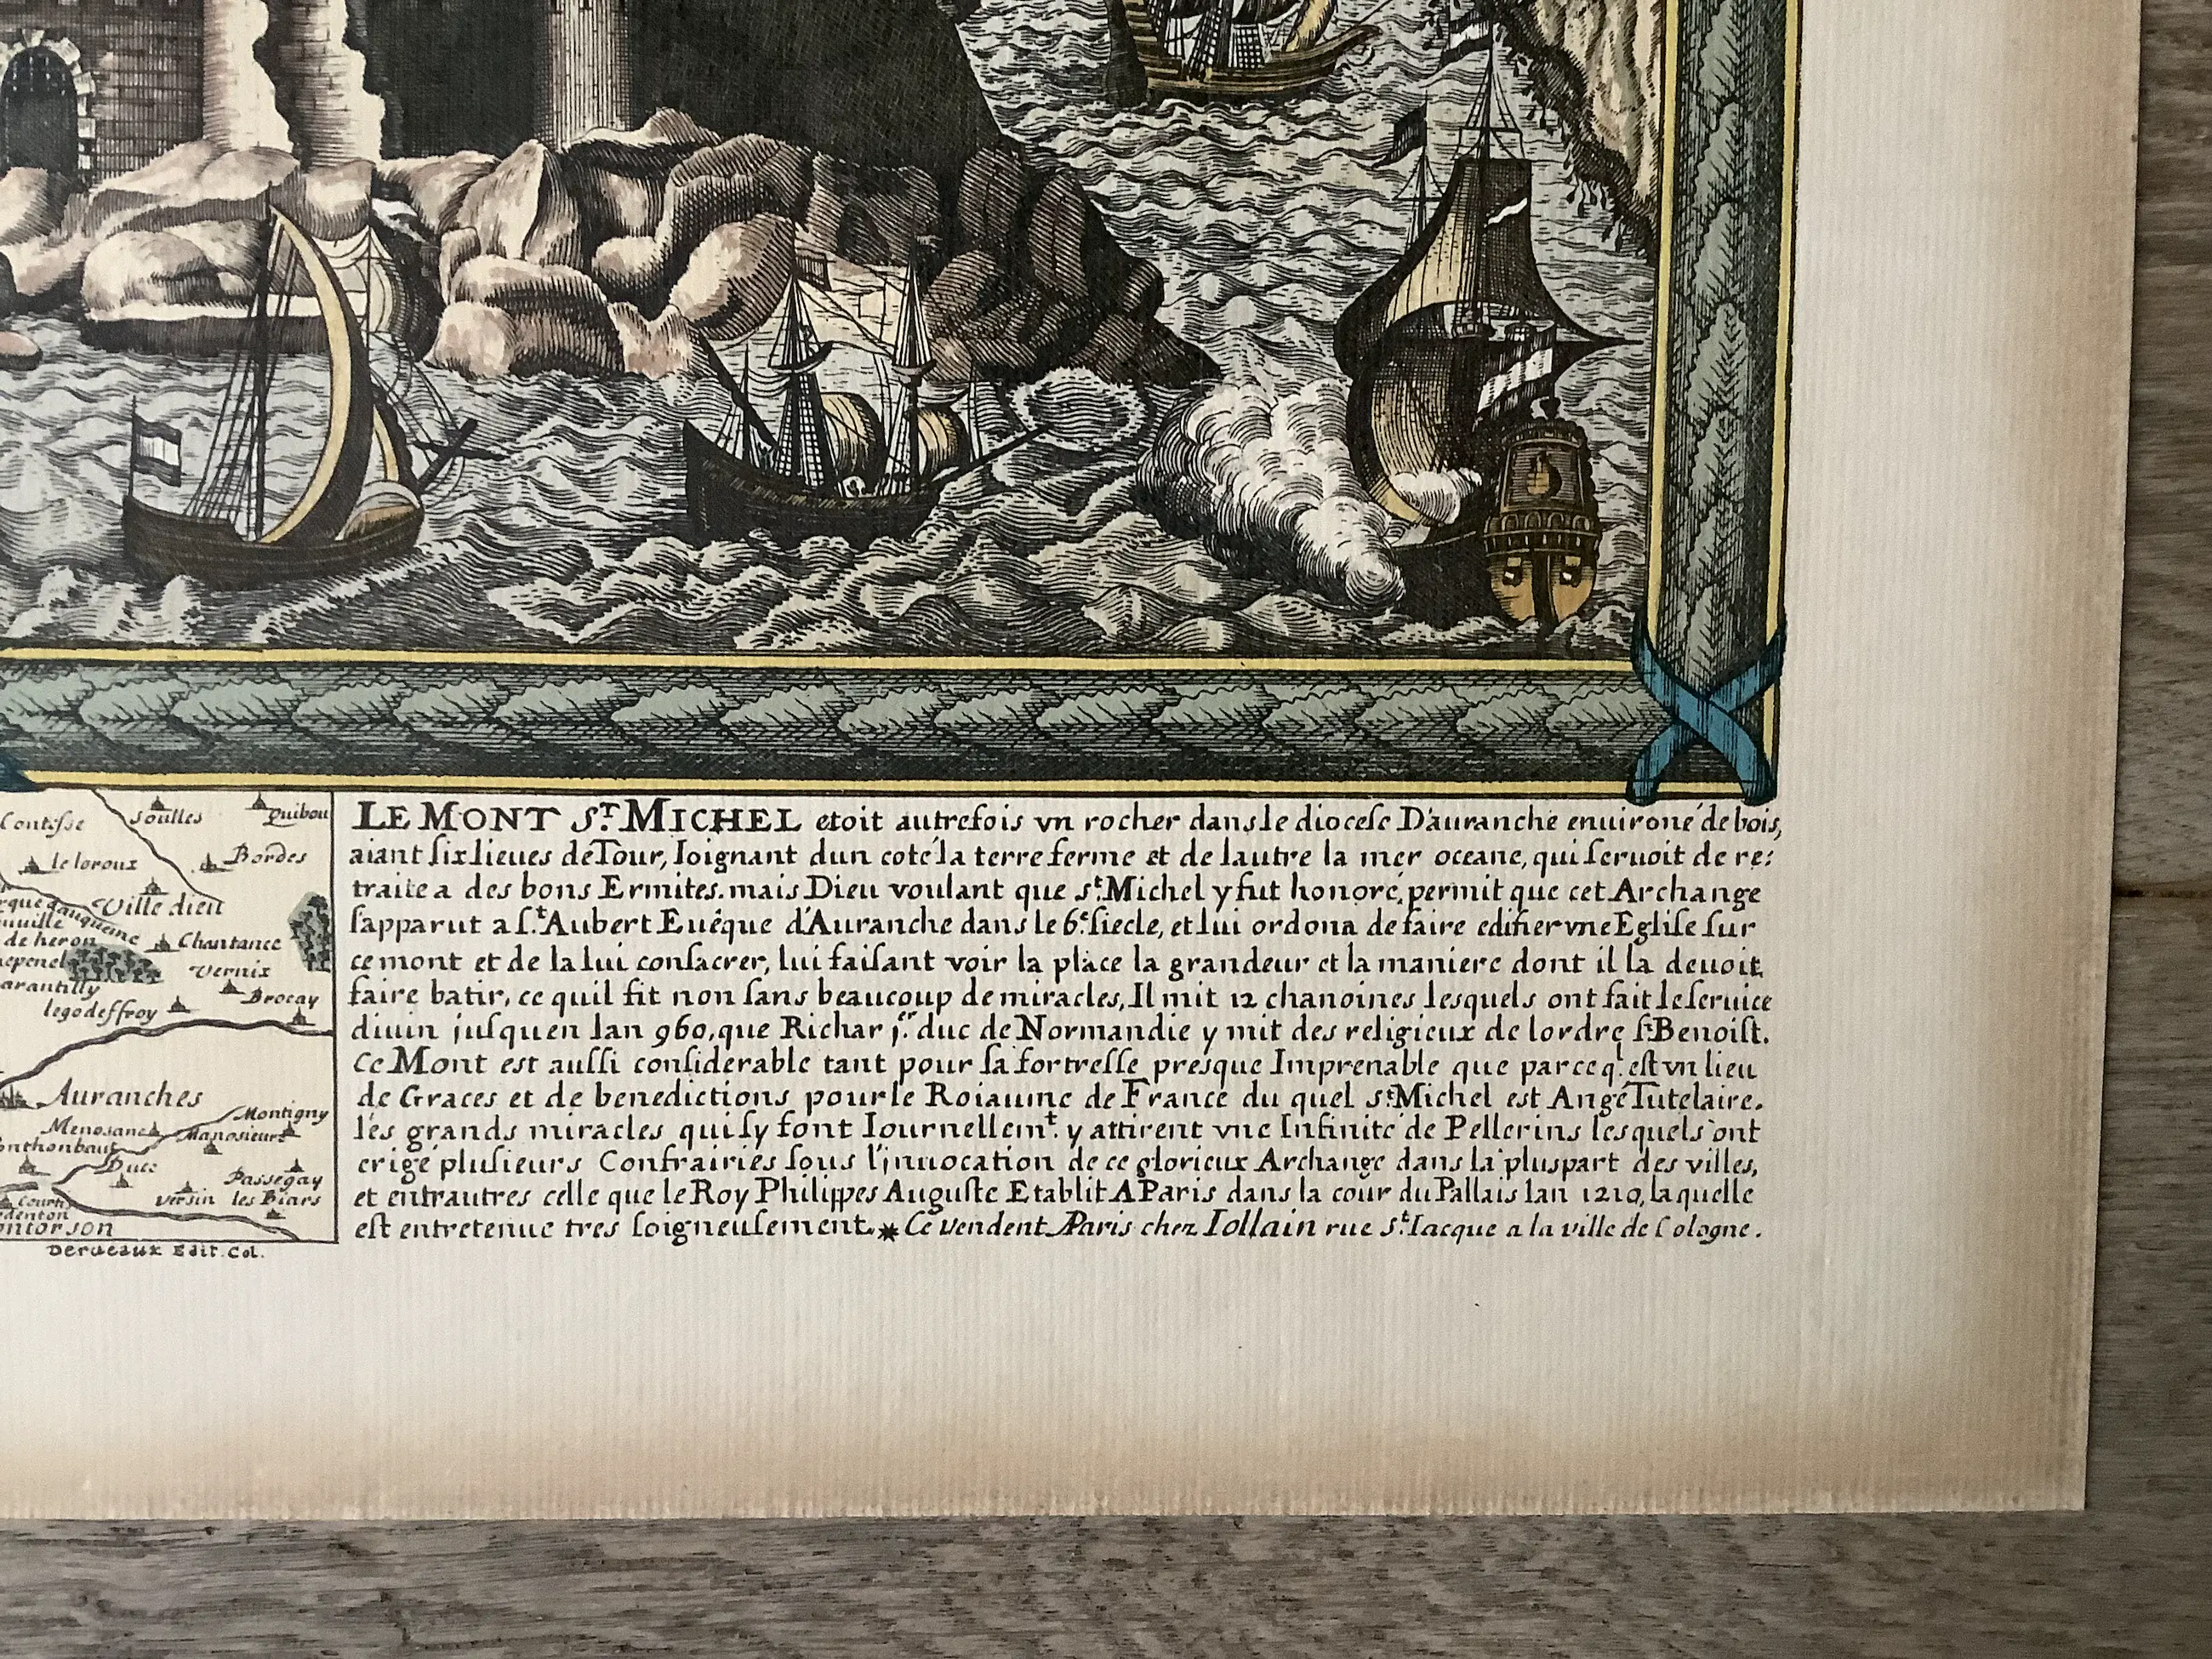 Contisse
Soulles
Quibou
le loroux
Bordes
Ville dieu
de heron
Chantance
Vernix
arantilly
Brocay
legodeffroy
Auranches
Montigny
Menosane
Manosieure
onthonbaut
Ducc
Passegay
Courti
Versin
les Biars
edenton
ontorson
Derveaux Edit. Col.
LE MONT St. MICHEL etoit autrefois vn rocher dans le diocese D'auranche enuironé de bois,
aiant six lieues de Tour, Ioignant dun coté la terre ferme et de lautre la mer oceane, qui seruoit de re:
traite a des bons Ermites. mais Dieu voulant que St. Michel y fut honoré, permit que cet Archange
sapparut a St. Aubert Euêque d'Auranche dans le 6e. siecle, et lui ordona de faire edifier vne Eglise sur
ce mont et de la lui consacrer, lui faisant voir la place la grandeur et la maniere dont il la deuoit
faire batir, ce quil fit non sans beaucoup de miracles, Il mit 12 chanoines lesquels ont fait le seruice
diuin jusquen lan 960, que Richar jer. duc de Normandie y mit des religieux de lordre st. Benoist.
Ce Mont est aussi considerable tant pour sa fortresse presque Imprenable que parceql. est vn lieu
de Graces et de benedictions pour le Roiaume de France du quel St. Michel est Ange Tutelaire.
les grands miracles qui sy font Iournellemt. y attirent vne Infinité de Pellerins lesquels ont
erigé plusieurs Confrairies sous l'jnuocation de ce glorieux Archange dans la pluspart des villes,
et entrautres celle que le Roy Philippes Auguste Etablit A Paris dans la cour du Pallais lan 1210, laquelle
est entretenue tres soigneusement. * Ce vendent A Paris chez Iollain rue St. Iacque a la ville de Cologne.